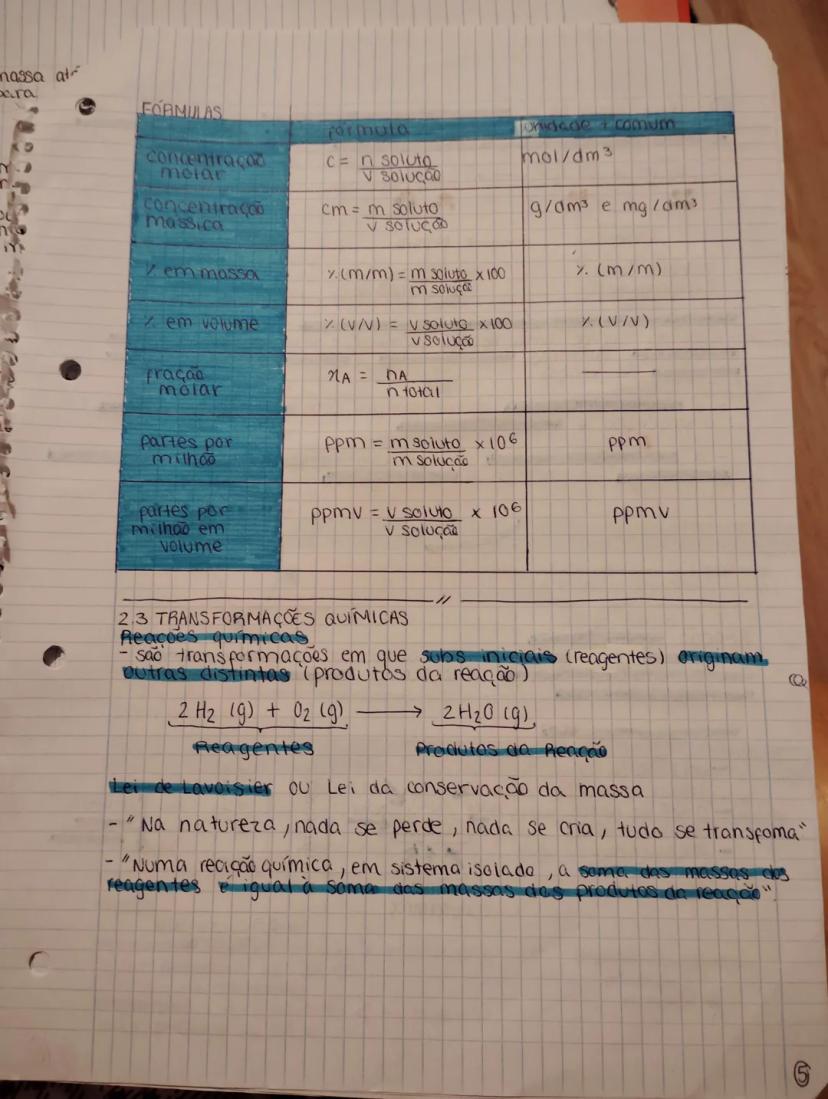 massa até
para
FÓRMULAS
fórmula
unidade + comum
concentração
molar
c = n soluto / V solução
mol/dm³
concentração
mássica
cm = m soluto / V solução
g/dm³ e mg/dm³
% em massa
% (m/m) = m soluto / m solução × 100
% (m/m)
% em volume
% (V/V) = V soluto / V solução × 100
% (V/V)
fração
molar
xA = nA / n total
partes por
milhão
ppm = m soluto / m solução × 10⁶
ppm
partes por
milhão em
volume
ppmv = V soluto / V solução × 10⁶
ppmv
2.3 TRANSFORMAÇÕES QUÍMICAS
Reações químicas
- são transformações em que subs iniciais (reagentes) originam
outras distintas (produtos da reação)
2 H₂ (g) + O₂ (g) ⟶ 2 H₂O (g)
Reagentes Produtos da Reação
Lei de Lavoisier ou Lei da conservação da massa
- "Na natureza, nada se perde, nada se cria, tudo se transfoma"
- "Numa reação química, em sistema isolado, a soma das massas dos
reagentes é igual à soma das massas dos produtos da reação"
5